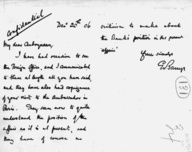 Confidential
Dec 20th 06
My dear
I have had occasion to see
the Foreign Office, and I communicated
to them at length all you have said,
and they have also had cognizance
of your visit to the Ambassador in
Paris. They seem now to quite
understand the position of the
affair as it is at present, and
they have of course no
criticism to make about
the Bank's position in the present
affair.
Yours sincerely